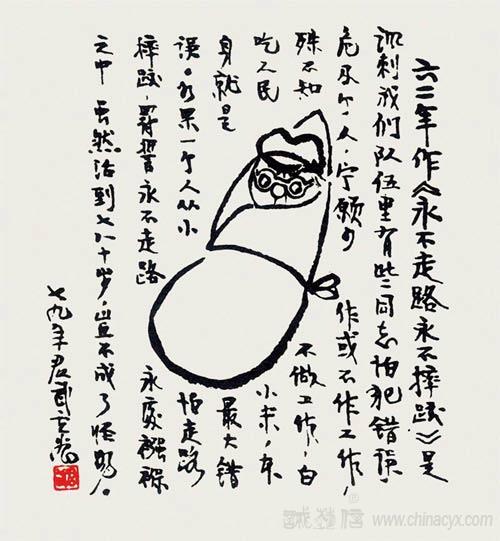 六二年作《永不走路永不摔跤》是
讽刺我们队伍里有些同志怕犯错误,
危及个人,宁愿少作或不作工作,
殊不知不做工作,白
吃人民小米,本
身就是最大错
误。如果一个人从小怕走路
摔跤,永不走路永处襁褓
之中虽然活到七八十岁,岂不成了怪物。
七九年君武
诚艺信 www.chinacyx.com